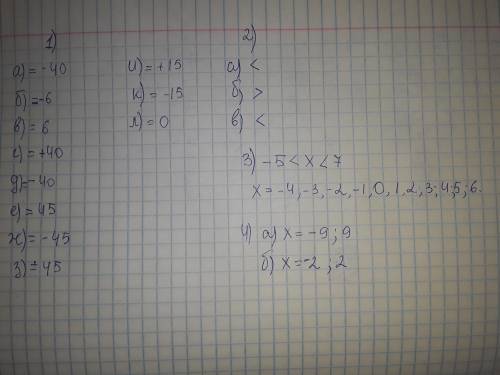 1)
а) = -40
б) = -6
в) = 6
г) = +40
д) = -40
е) = 45
ж) = -45
з) = 45
и) = +15
к) = -15
л) = 0
2)
а) <
б) >
в) <
3) -5 < x < 7
x = -4, -3, -2, -1, 0, 1, 2, 3; 4; 5; 6.
4) а) x = -9; 9
б) x = -2; 2